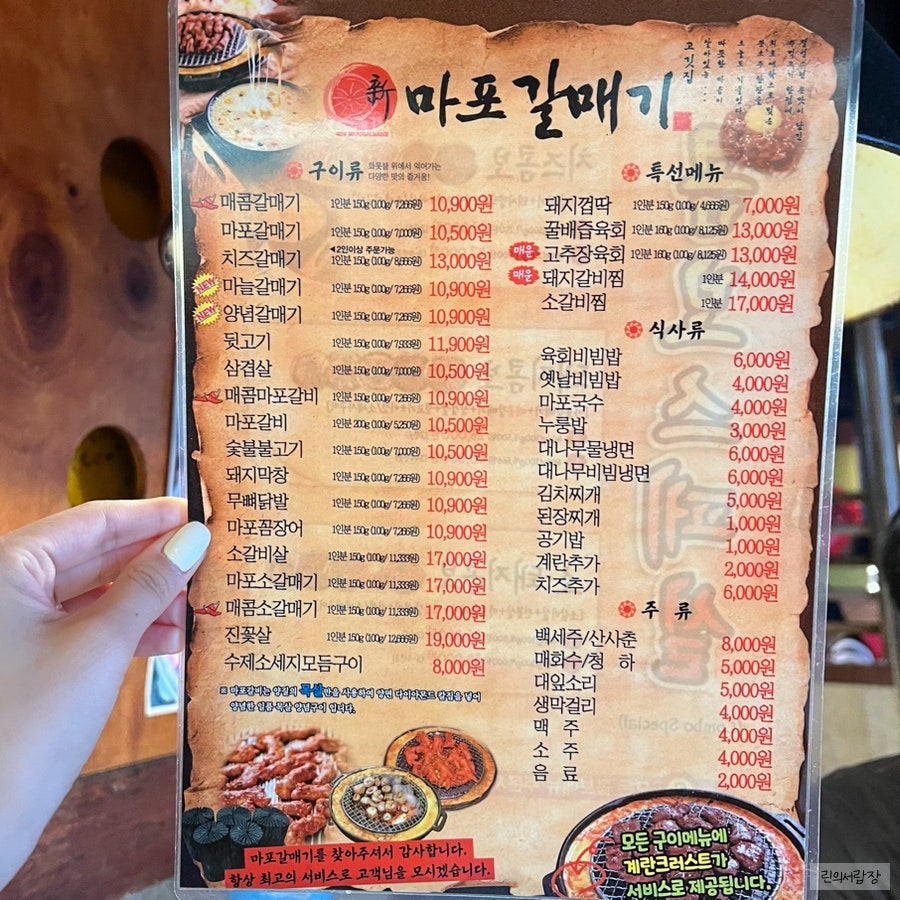 新 마포갈매기
고깃집
구이류 화롯불 위에서 익어가는
다양한 맛의 즐거움!
매콤갈매기 1인분 150g (100g/ 7,266원) 10,900원
마포갈매기 1인분 150g (100g/ 7,000원) 10,500원
◀2인이상 주문가능
치즈갈매기 1인분 150g (100g/ 8,666원) 13,000원
NEW 마늘갈매기 1인분 150g (100g/ 7,266원) 10,900원
NEW 양념갈매기 1인분 150g (100g/ 7,266원) 10,900원
뒷고기 1인분 150g (100g/ 7,933원) 11,900원
삼겹살 1인분 150g (100g/ 7,000원) 10,500원
매콤마포갈비 1인분 150g (100g/ 7,266원) 10,900원
마포갈비 1인분 200g (100g/ 5,250원) 10,500원
숯불불고기 1인분 150g (100g/ 7,000원) 10,500원
돼지막창 1인분 150g (100g/ 7,266원) 10,900원
무뼈닭발 1인분 150g (100g/ 7,266원) 10,900원
마포꼼장어 1인분 150g (100g/ 7,266원) 10,900원
소갈비살 1인분 150g (100g/ 11,333원) 17,000원
마포소갈매기 1인분 150g (100g/ 11,333원) 17,000원
매콤소갈매기 1인분 150g (100g/ 11,333원) 17,000원
진꽃살 1인분 150g (100g/ 12,666원) 19,000원
수제소세지모듬구이 8,000원
※ 마포갈비는 양질의 목살만을 사용하여 양면 다이아몬드 칼집을 넣어
양념한 일품 목살 양념구이 입니다.
특선메뉴
돼지껍딱 1인분 150g (100g/ 4,666원) 7,000원
꿀배즙육회 1인분 160g (100g/ 8,125원) 13,000원
매운 고추장육회 1인분 160g (100g/ 8,125원) 13,000원
매운 돼지갈비찜 1인분 14,000원
소갈비찜 1인분 17,000원
식사류
육회비빔밥 6,000원
옛날비빔밥 4,000원
마포국수 4,000원
누룽밥 3,000원
대나무물냉면 6,000원
대나무비빔냉면 6,000원
김치찌개 5,000원
된장찌개 1,000원
공기밥 1,000원
계란추가 2,000원
치즈추가 6,000원
주 류
백세주/산사춘 8,000원
매화수/청 하 5,000원
대잎소리 5,000원
생막걸리 4,000원
맥 주 4,000원
소 주 4,000원
음 료 2,000원
마포갈매기를 찾아주셔서 감사합니다.
항상 최고의 서비스로 고객님을 모시겠습니다.
모든 구이메뉴에
계란크러스트가
서비스로 제공됩니다.
린의서랍장